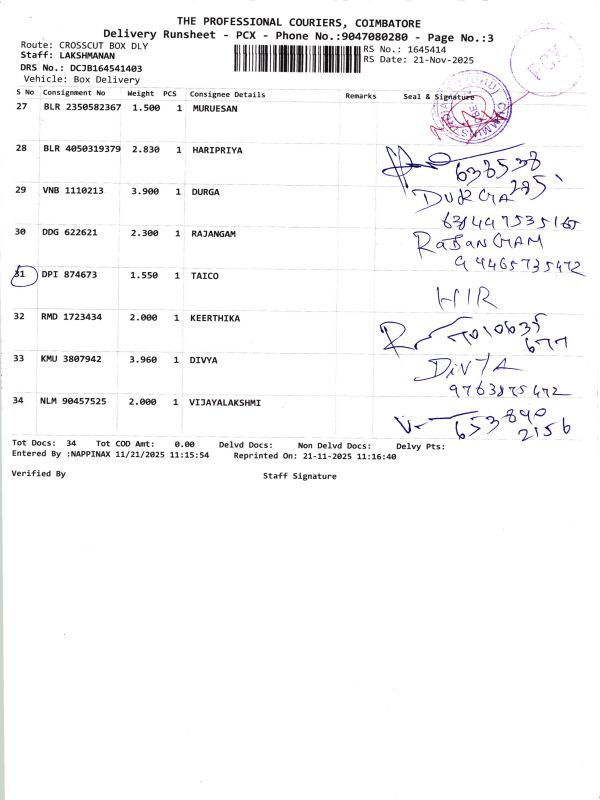 THE PROFESSIONAL COURIERS, COIMBATORE
Delivery Runsheet - PCX - Phone No.:9047080280 - Page No.:3
Route: CROSSCUT BOX DLY
RS No.: 1645414
Staff: LAKSHMANAN
RS Date: 21-Nov-2025
DRS No.: DCJB164541403
Vehicle: Box Delivery
PCX
S No Consignment No Weight PCS Consignee Details Remarks Seal & Signature
27 BLR 2350582367 1.500 1 MURUESAN
28 BLR 4050319379 2.830 1 HARIPRIYA
638538
285
29 VNB 1110213 3.900 1 DURGA
DURGA
30 DDG 622621 2.300 1 RAJANGAM
RAJANGAM
9 4465735472
31 DPI 874673 1.550 1 TAICO
HIR
32 RMD 1723434 2.000 1 KEERTHIKA
7010635
677
33 KMU 3807942 3.960 1 DIVYA
DIVYA
9763875472
34 NLM 90457525 2.000 1 VIJAYALAKSHMI
653890
2156
Tot Docs: 34 Tot COD Amt: 0.00 Delvd Docs: Non Delvd Docs: Delvy Pts:
Entered By :NAPPINAX 11/21/2025 11:15:54 Reprinted On: 21-11-2025 11:16:40
Verified By Staff Signature